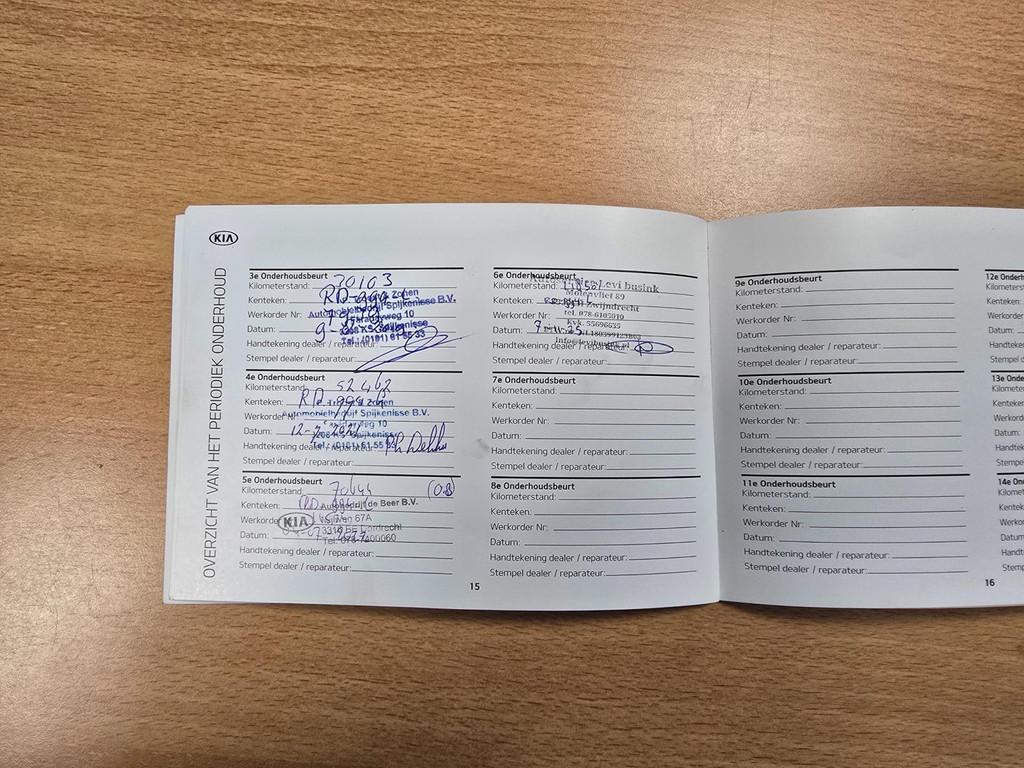 KIA
OVERZICHT VAN HET PERIODIEK ONDERHOUD
3e Onderhoudsbeurt
Kilometerstand: 30103
Kenteken: RD-299-
Werkorder Nr:
Datum: 9-
Handtekening dealer / reparateur:
Stempel dealer / reparateur:
Zonen
Automobielbedrijf Spijkenisse B.V.
weg 10
Spijkenisse
Tel.: (0181) 61 55 33
4e Onderhoudsbeurt
Kilometerstand: 52462
Kenteken: RD
Werkorder
Datum: 12-
Handtekening dealer / reparateur:
Stempel dealer / reparateur:
Zonen
Automobielbedrijf Spijkenisse B.V.
weg 10
Spijkenisse
Tel.: (0181) 61 55 33
5e Onderhoudsbeurt
Kilometerstand: 70644 (OB)
Kenteken:
Werkorder
Datum:
Handtekening dealer / reparateur:
Stempel dealer / reparateur:
Autobedrijf de Beer B.V.
KIA
67A
Dordrecht
Tel. 078-7400060
6e Onderhoudsbeurt
Kilometerstand:
Kenteken:
Werkorder Nr:
Datum: 7
Handtekening dealer / reparateur:
Stempel dealer / reparateur:
Levi busink
Molenvliet 89
Zwijndrecht
tel. 078-6105010
Kvk. 55696635
info@levibusink.nl
7e Onderhoudsbeurt
Kilometerstand:
Kenteken:
Werkorder Nr:
Datum:
Handtekening dealer / reparateur:
Stempel dealer / reparateur:
8e Onderhoudsbeurt
Kilometerstand:
Kenteken:
Werkorder Nr:
Datum:
Handtekening dealer / reparateur:
Stempel dealer / reparateur:
15
9e Onderhoudsbeurt
Kilometerstand:
Kenteken:
Werkorder Nr:
Datum:
Handtekening dealer / reparateur:
Stempel dealer / reparateur:
10e Onderhoudsbeurt
Kilometerstand:
Kenteken:
Werkorder Nr:
Datum:
Handtekening dealer / reparateur:
Stempel dealer / reparateur:
11e Onderhoudsbeurt
Kilometerstand:
Kenteken:
Werkorder Nr:
Datum:
Handtekening dealer / reparateur:
Stempel dealer / reparateur:
16
12e Onder
Kilometers
Kenteken:
Werkorde
Datum:
Handteke
Stempel d
13e Onde
Kilometer
Kenteken
Werkord
Datum:
Handtek
Stempel
14e On
Kilomet
Kenteke
Werkor
Datum:
Handte
Stemp